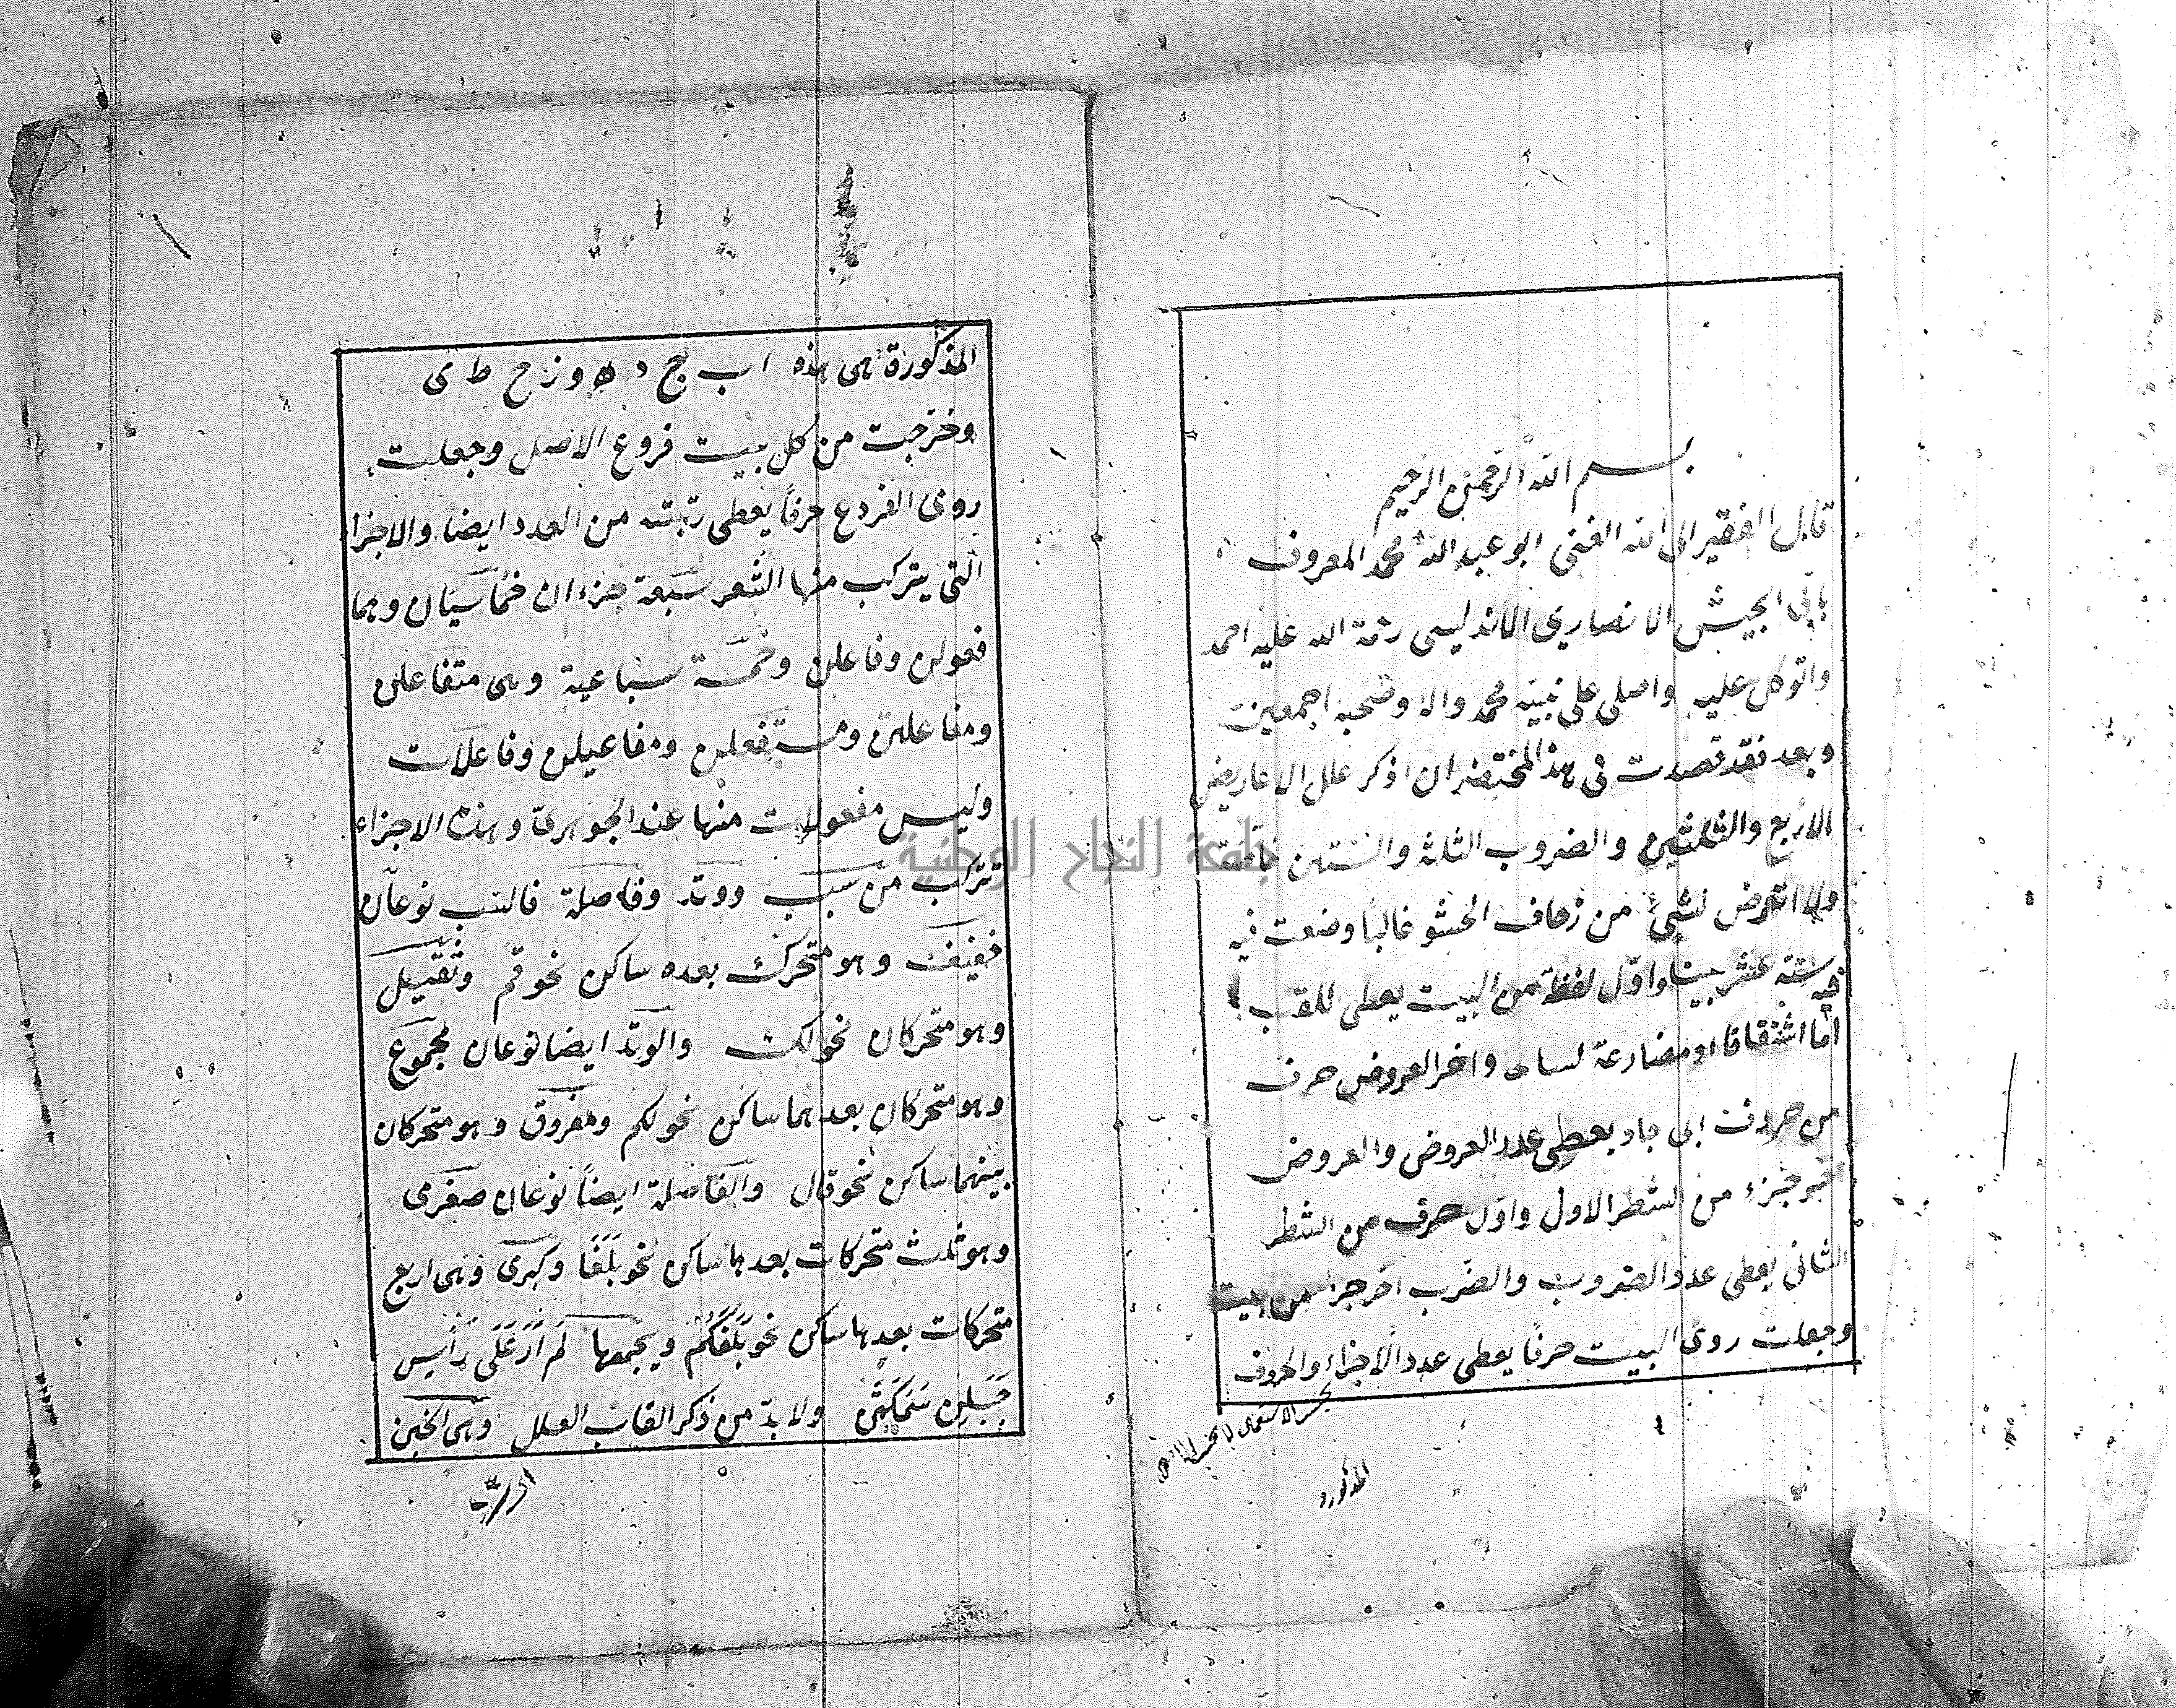 بسم الله الرحمن الرحيم
قال الفقير الى الله الغنى ابو عبد الله محمد المعروف
بابى الجيش الانصاري الاندليسى رحمة الله عليه احمد
واتوكل عليه واصلى على نبيه محمد واله وصحبه اجمعين
وبعد فقد قصدت فى هذا المختصر ان اذكر علل الاعاريض
الاربع والثلثين والضروب الثلثة والستين خاصة
ولا اتعرض لشىء من زحاف الحشو غالبا وضعت فيه
فيه ستة عشر بيتا واول لفظة من البيت يعطى للقب
اما اشتقاقا او مضارعة لسان واخر العروض حرف
من حروف ابى جاد يعطى عدد العروض والعروض
اخر جزء من الشطر الاول واول حرف من الشطر
الثانى يعطى عدد الضروب والضرب اخر جزء من بيت
وجعلت روى البيت حرفا يعطى عدد الاجزاء والحروف
المذكورة
المذكورة هى هذه ا ب ج د ه و ز ح ط ى
وخرجت من كل بيت فروع الاصل وجعلت
روى الفروع حرفاً يعطى رتبته من العدد ايضا والاجزاء
التى يتركب منها الشعر سبعة جزءان خماسيان وهما
فعولن وفاعلن وخمسة سباعية وهى متفاعلن
ومفاعلتن ومستفعلن ومفاعيلن وفاعلات
وليس مفعولات منها عند الجوهرى وهذه الاجزاء
تتركب من سبب ووتد وفاصلة فالسبب نوعان
خفيف وهو متحرك بعده ساكن نحو قم وثقيل
وهو متحركان نحو لك والوتد ايضا نوعان مجموع
وهو متحركان بعدهما ساكن نحو لكم ومفروق وهو متحركان
بينهما ساكن نحو قال والفاصلة ايضاً نوعان صغرى
وهو ثلث متحركات بعدها ساكن نحو بَلَغَا وكبرى وهى اربع
متحركات بعدها ساكن نحو بَلَغَكُم ويجمعها لَم اَرَ عَلَى رَأسِ
جَبَلِن سَمَكَتَن ولا بد من ذكر القاب العلل وهى الخبن
جامعة النجاح الوطنية